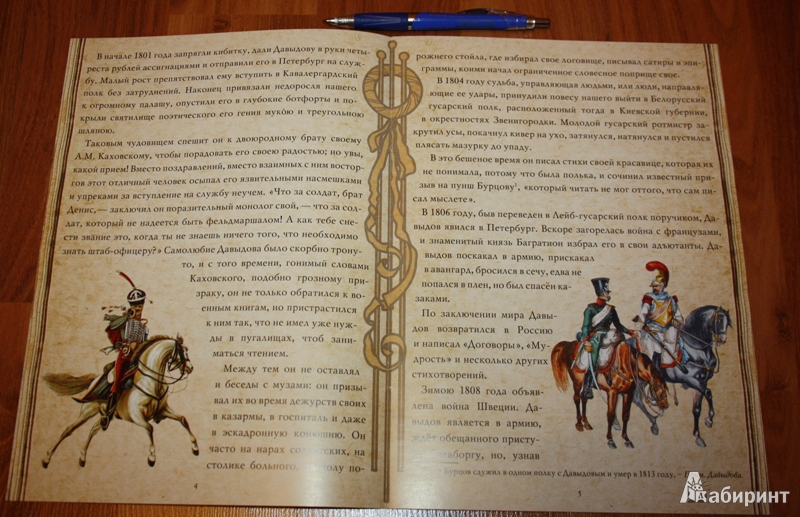 В начале 1801 запрягли кибитку, дали Давыдову в руки четы-
реста рублей ассигнациями и отправили его в Петербург на служ-
бу. Малый рост препятствовал ему вступить в Кавалергардский
полк без затруднений. Наконец привязали недоросля нашего
к огромному палашу, опустили его в глубокие ботфорты и по-
крыли святилище поэтического его гения мукою и треугольною
шляпою.
Таковым чудовищем спешит он к двоюродному брату своему
А.М. Каховскому, чтобы порадовать его своею радостью; но увы,
какой прием! Вместо поздравлений, вместо взаимных с ним востор-
гов этот отличный человек осыпал его язвительными насмешками
и упреками за вступление на службу неучем. «Что за солдат, брат
Денис, — заключил он поразительный монолог свой, — что за сол-
дат, который не надеется быть фельдмаршалом! А как тебе сне-
сти звание это, когда ты не знаешь ничего того, что необходимо
знать штаб-офицеру?» Самолюбие Давыдова было скорбно трону-
то, и с того времени, гонимый словами
Каховского, подобно грозному при-
зраку, он не только обратился к во-
енным книгам, но пристрастился
к ним так, что не имел уже нуж-
ды в пугалищах, чтоб зани-
маться чтением.
Между тем он не оставлял
и беседы с музами: он призы-
вал их во время дежурств своих
в казармы, в госпиталь и даже
в эскадронную конюшню. Он
часто на нарах солдатских, на
столике больного, на полу по-
4
рожнего стойла, где избирал свое логовище, писывал сатиры и эпи-
граммы, коими начал ограниченное словесное поприще свое.
В 1804 году судьба, управляющая людьми, или люди, направля-
ющие ее удары, принудили повесу нашего выйти в Белорусский
гусарский полк, расположенный тогда в Киевской губернии,
в окрестностях Звенигородки. Молодой гусарский ротмистр за-
крутил усы, покачнул кивер на ухо, затянулся, натянулся и пустился
плясать мазурку до упаду.
В это бешеное время он писал стихи своей красавице, которая их
не понимала, потому что была полька, и сочинил известный при-
зыв на пунш Бурцову¹, «который читать не мог оттого, что сам пи-
сал мыслете».
В 1806 году, быв переведен в Лейб-гусарский полк поручиком, Да-
выдов явился в Петербург. Вскоре загорелась война с французами,
и знаменитый князь Багратион избрал его в свои адъютанты. Да-
выдов поскакал в армию, прискакал
в авангард, бросился в сечу, едва не
попался в плен, но был спасён ка-
заками.
По заключении мира Давы-
дов возвратился в Россию
и написал «Договоры», «Му-
дрость» и несколько других
стихотворений.
Зимою 1808 года объяв-
лена война Швеции. Да-
выдов является в армию,
ждёт обещанного присту-
но, узнав
Бурцов служил в одном полку с Давыдовым и умер в 1813 году. – Давыдова.
5
Лабиринт